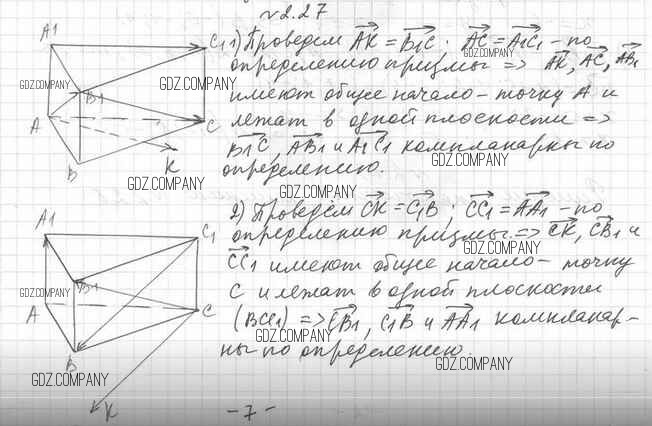 №2.27
1) Проведем AK = B1C ; AC = A1C1 - по
определению призмы => AK, AC, AB1
имеют общее начало - точку A и
лежат в одной плоскости =>
B1C, AB1 и A1C1 компланарны по
определению.
A1
C1
B1
A
C
B
K
2) Проведём CK = C1B ; CC1 = AA1 - по
определению призмы => CK, CB1 и
CC1 имеют общее начало - точку
C и лежат в одной плоскости
(BCC1) => CB1, C1B и AA1 компланар-
ны по определению.
A1
C1
B1
A
C
B
K
- 7 -
GDZ.COMPANY
GDZ.COMPANY
GDZ.COMPANY
GDZ.COMPANY
GDZ.COMPANY
GDZ.COMPANY
GDZ.COMPANY
GDZ.COMPANY
GDZ.COMPANY
GDZ.COMPANY
GDZ.COMPANY
GDZ.COMPANY